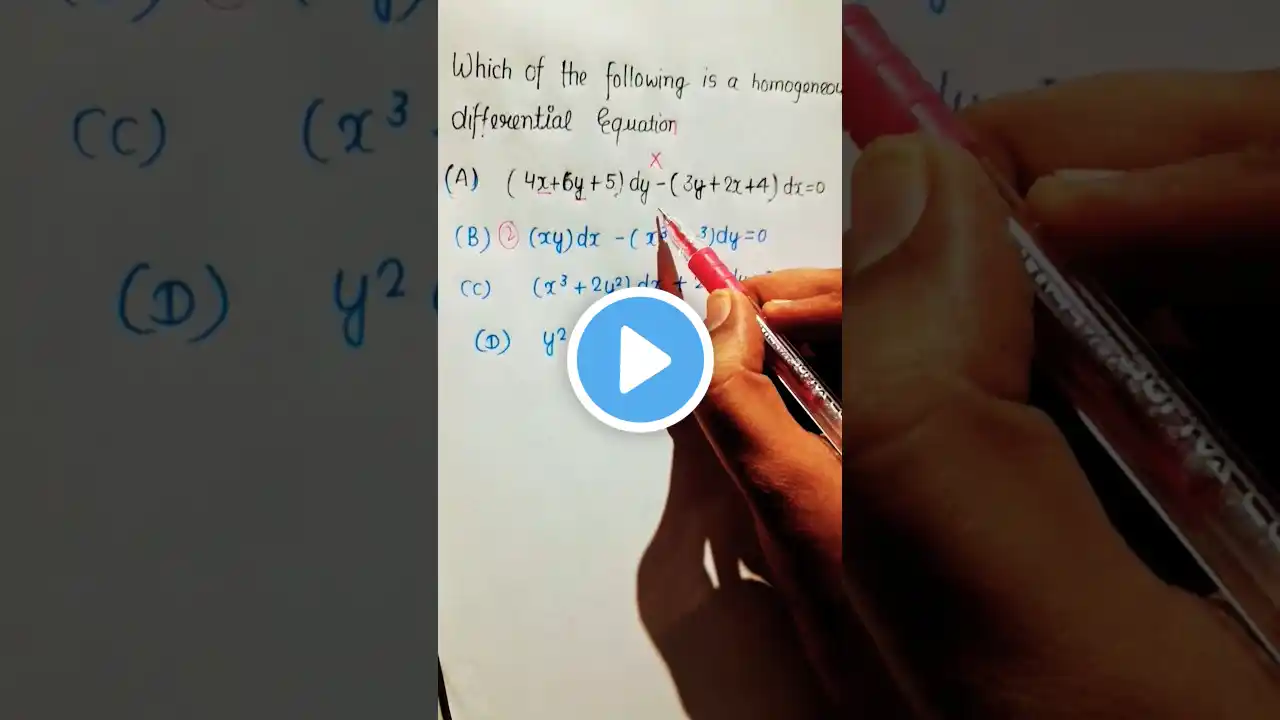 Which of the following is a homogeneou
differential Equation
X
(A) (4x+6y+5) dy - (3y+2x+4) dx=0
(B) ② (xy)dx - (x³ ³)dy=0
(C) (x³+2y²) dx + 2
(D) y²
(C) (x³
(D) y²